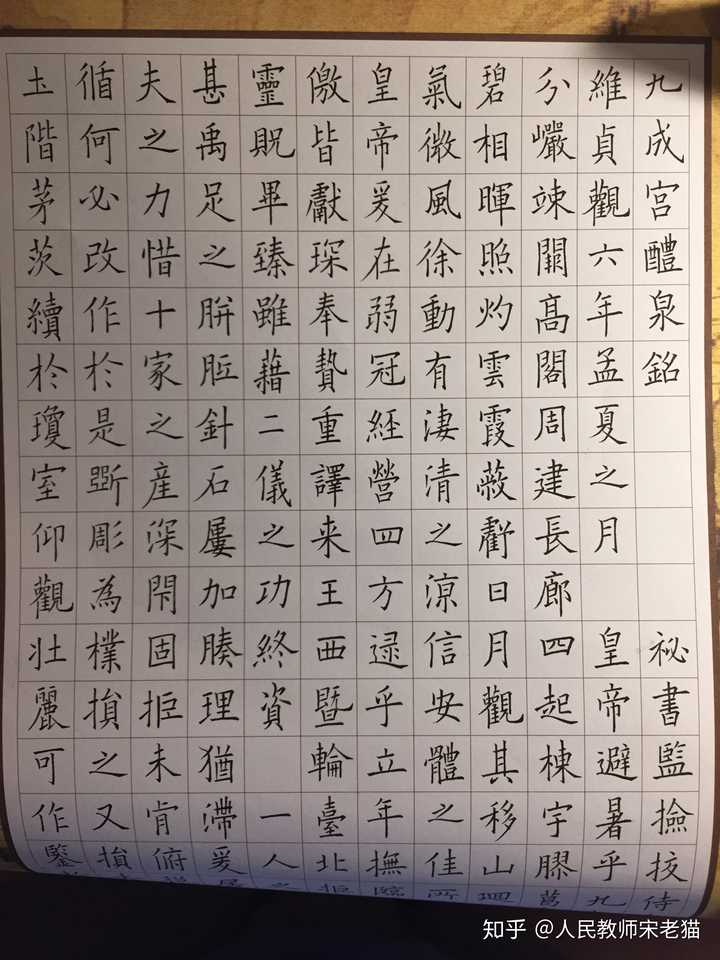 九成宮醴泉銘
祕書監撿挍侍
維貞觀六年孟夏之月
皇帝避暑乎九
分巖竦闕高閣周建長廊四起棟宇膠葛
碧相暉照灼雲霞蔽虧日月觀其移山迴
氣微風徐動有淒清之涼信安體之佳所
皇帝爰在弱冠經營四方逮乎立年撫臨
儌皆獻琛奉贄重譯来王西暨輪臺北拒
靈貺畢臻雖藉二儀之功終資
一人之
甚禹足之胼胝針石屢加腠理猶滯爰居
夫之力惜十家之産深閇固拒未肯俯
循何必改作於是斵彫為樸損之又損
土階茅茨續於瓊室仰觀壯麗可作鑒
知乎 @人民教师宋老猫